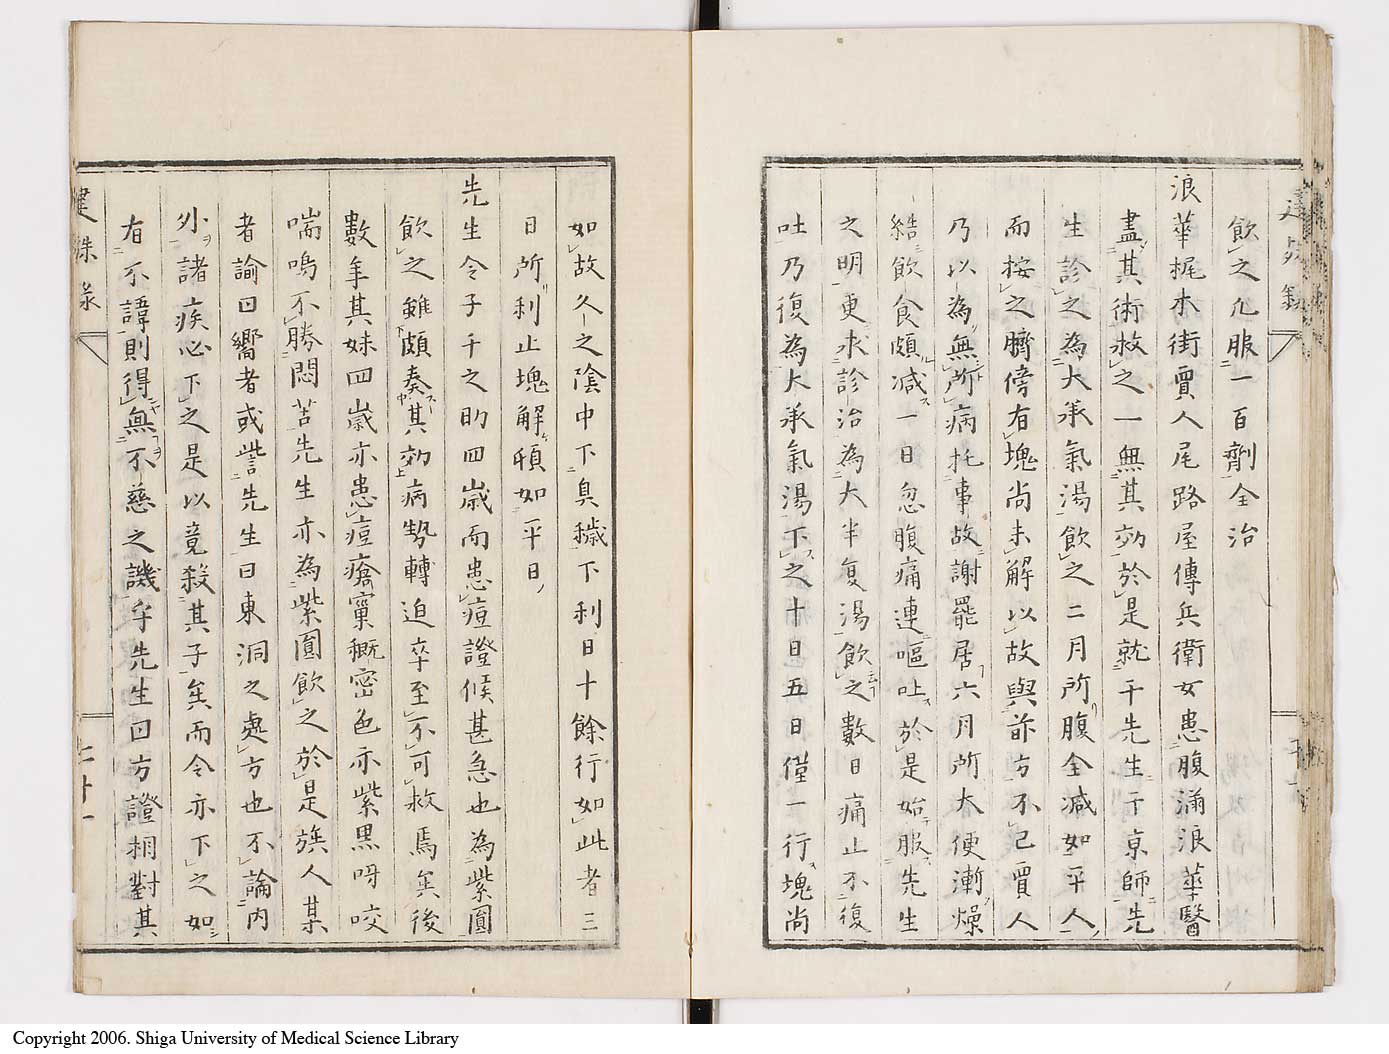 飲之凡服一百劑全治
浪華梶木街賈人尾路屋傳兵衛女患腹滿浪華醫
盡其術救之一無其効於是就于先生于京師先
生診之為大承氣湯飲之二月所腹全減如平人
而按之臍傍有塊尚未解以故與前方不已賈人
乃以為無所病托事故謝罷居六月所大便漸燥
結飲食頗減一日忽腹痛連嘔吐於是始服先生
之明更求診治為大半夏湯飲之數日痛止不復
吐乃復為大承氣湯下之十日五日僅一行塊尚
如故久之陰中下臭穢下利日十餘行如此者三
日所利止塊解頓如平日
先生令子千之助四歲而患痘證候甚急也為紫圓
飲之雖頗奏其効病勢轉迫卒至不可救焉矣後
數年其妹四歲亦患痘瘡窠穊密色亦紫黑呀咬
喘鳴不勝悶苦先生亦為紫圓飲之於是族人某
者諭曰嚮者或訾先生曰東洞之處方也不論內
外諸疾必下之是以竟殺其子矣而令亦下之如
有不諱則得無不慈之譏乎先生曰方證相對其
建殊錄
Copyright 2006. Shiga University of Medical Science Library